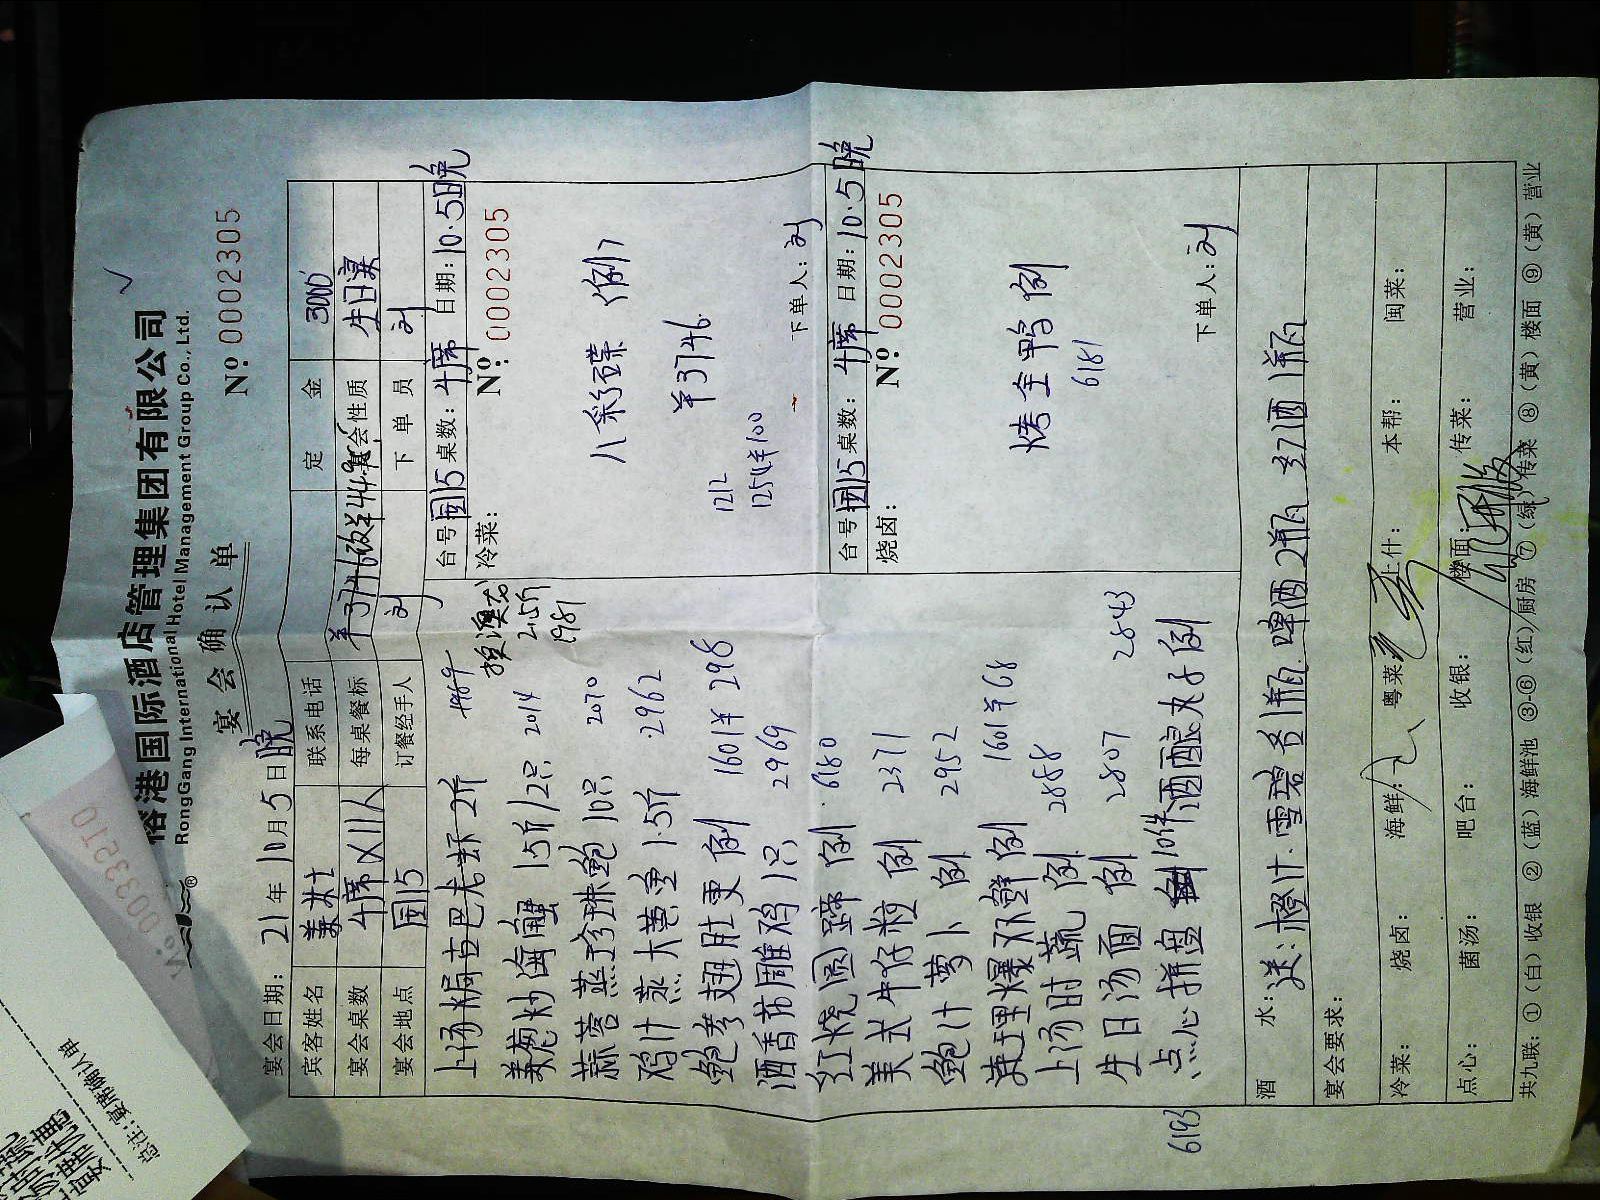 裕港国际酒店管理集团有限公司
RongGang International Hotel Management Group Co., Ltd.
宴会确认单
Nº 0002305
宴会日期: 21年10月5日晚
宾客姓名 姜女士 联系电话 定金 3000
宴会桌数 4席×11人 每桌餐标 ¥3746改¥449 宴会性质 生日宴
宴会地点 园15 订餐经手人 刘 下单员 刘
上汤焗古巴龙虾 2斤 4969
换澳龙
2.5斤
1981
姜葱炒海蟹 1.5斤/2只 2014
蒜蓉蒸珍珠鲍 10只 2070
鸡汁蒸大 1.5斤 2962
鲍参翅肚更 例 1601¥298
酒香花雕鸡 1只 2969
红烧圆蹄 例 6180
美式牛仔粒 例 2371
鲍汁萝卜 例 2952
爆双鲜 例 1601¥68
上汤时蔬 例 2888
生日汤面 例 2807
点心拼盘 10件 酒酿丸子 例 2843
6193
台号 园15 桌数: 4席 日期: 10.5晚
冷菜: Nº 0002305
八彩碟 (例)
¥3746
1212
1254¥100
下单人: 刘
台号 园15 桌数: 4席 日期: 10.5晚
烧卤: Nº 0002305
烤全鸭 例
6181
下单人: 刘
酒水: 送: 橙汁.雪碧各1瓶.啤酒2瓶.红酒1瓶
宴会要求:
冷菜: 烧卤: 海鲜: 粤菜: 上什: 本帮: 闽菜:
点心: 菌汤: 吧台: 收银: 楼面: 传菜: 营业:
共九联: ①(白)收银 ②(蓝)海鲜池 ③-⑥(红)厨房 ⑦(绿)传菜 ⑧(黄)楼面 ⑨(黄)营业
Nº 0033270
总注: 宴席确认单